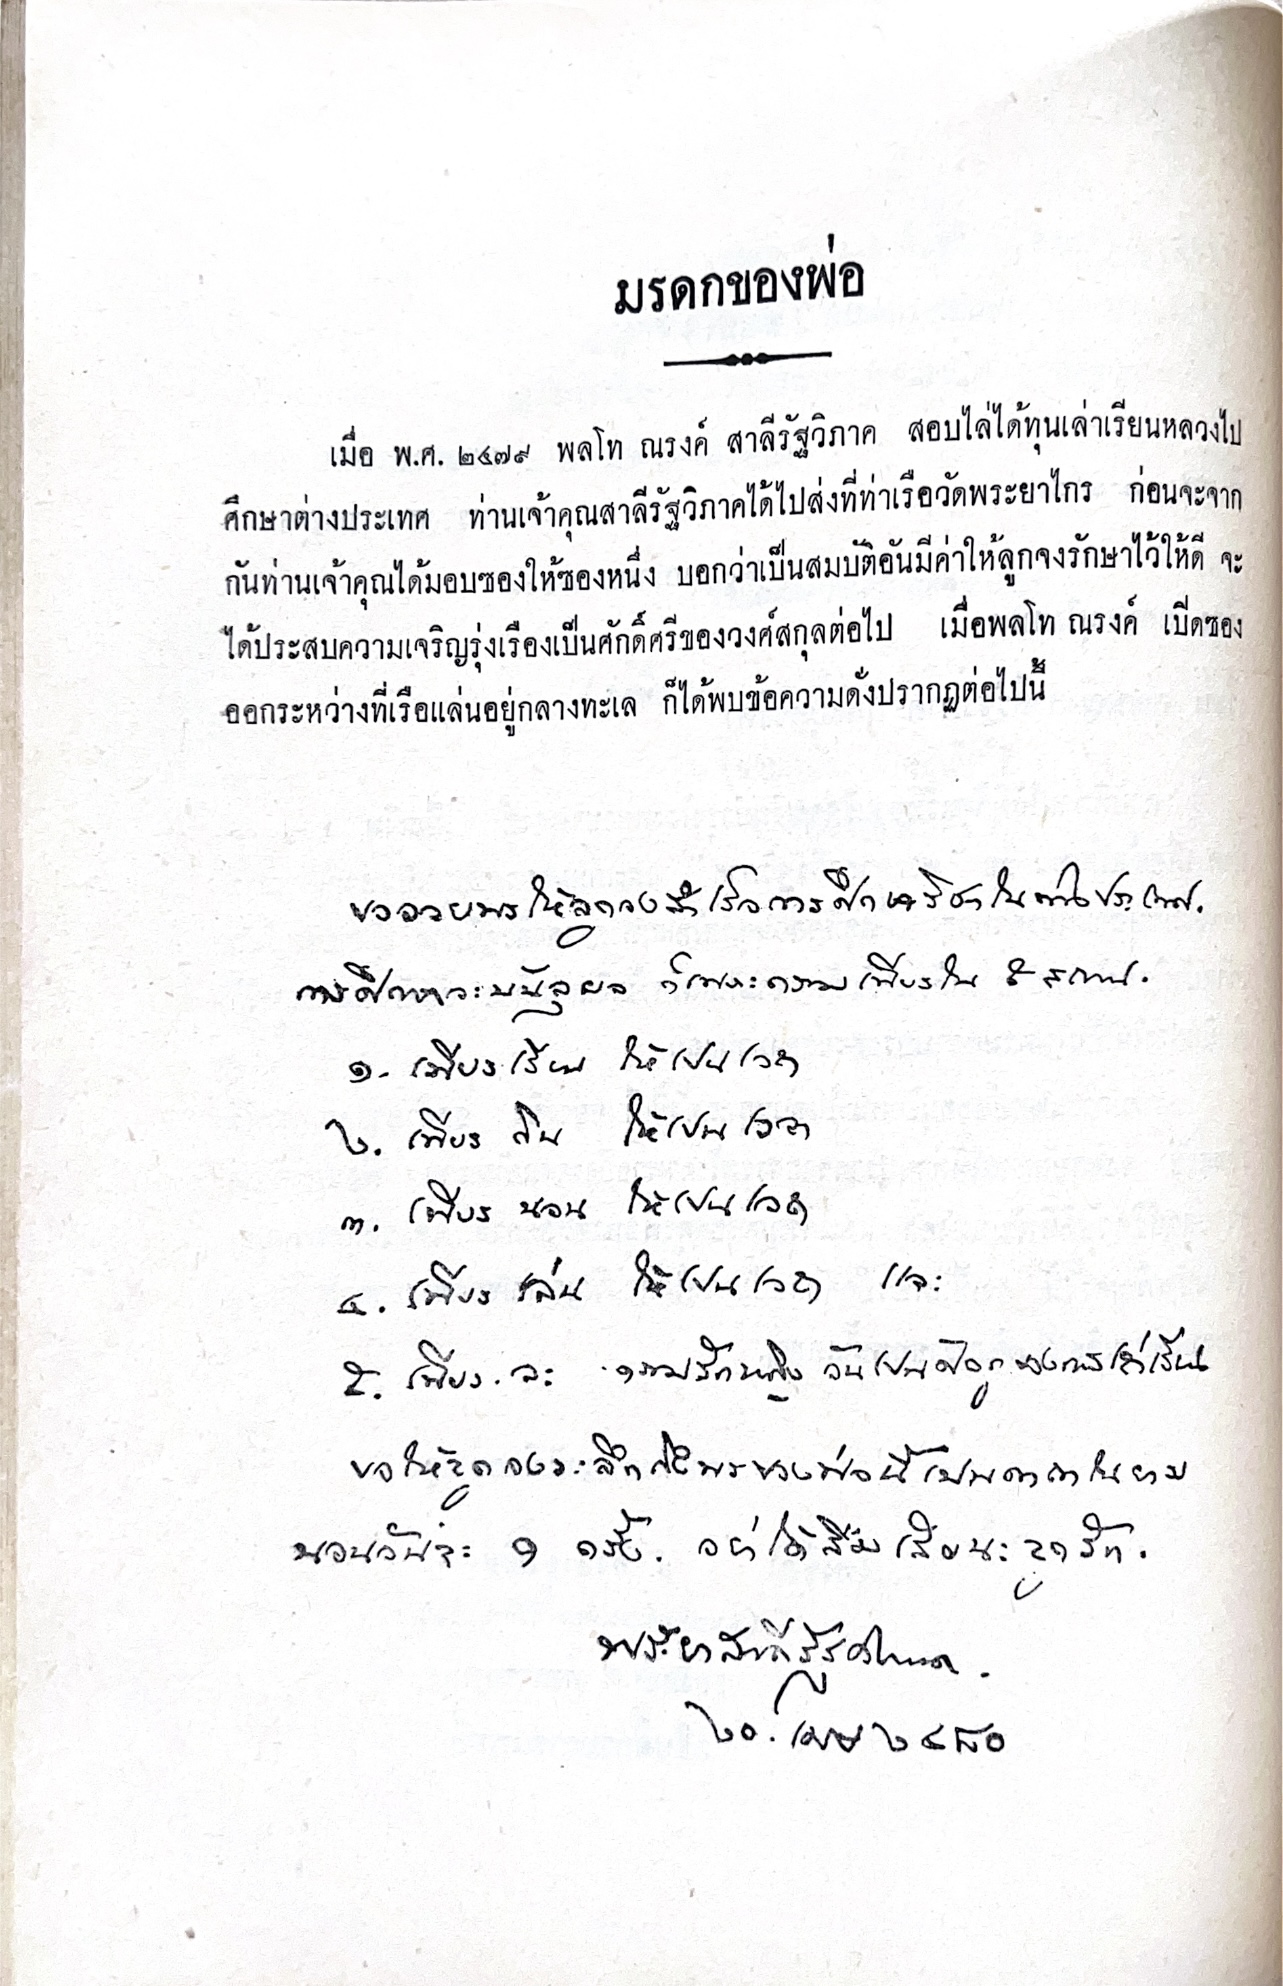 มรดกของพ่อ
เมื่อ พ.ศ. ๒๔๗๙ พลโท ณรงค์ สาลีรัฐวิภาค สอบไล่ได้ทุนเล่าเรียนหลวงไป
ศึกษาต่างประเทศ ท่านเจ้าคุณสาลีรัฐวิภาคได้ไปส่งที่ท่าเรือวัดพระยาไกร ก่อนจะจาก
กันท่านเจ้าคุณได้มอบซองให้ซองหนึ่ง บอกว่าเป็นสมบัติอันมีค่าให้ลูกจงรักษาไว้ให้ดี จะ
ได้ประสบความเจริญรุ่งเรืองเป็นศักดิ์ศรีของวงศ์สกุลต่อไป เมื่อพลโท ณรงค์ เปิดซอง
ออกระหว่างที่เรือแล่นอยู่กลางทะเล ก็ได้พบข้อความดั่งปรากฏต่อไปนี้
ขออวยพรให้ลูกจงสำเร็จการศึกษาวิชาในต่างประเทศ.
การศึกษาจะบรรลุผล ก็เพราะความเพียรใน ๕ สถาน.
๑. เพียรเรียน ให้เปนเวลา
๒. เพียร กิน ให้เปนเวลา
๓. เพียร นอน ให้เปนเวลา
๔. เพียร เล่น ให้เปนเวลา และ
๕. เพียร ละ ความรักหญิง อันเปนศัตรูของการเล่าเรียน
ขอให้ลูกจงระลึกถึงพรของพ่อนี้เปนคาถาในยาม
นอนวันละ ๑ ครั้ง. อย่าได้ลืมเสียนะลูกรัก.
พระยาสาลีรัฐวิภาค.
๒๐. เมษ ๒๔๘๐